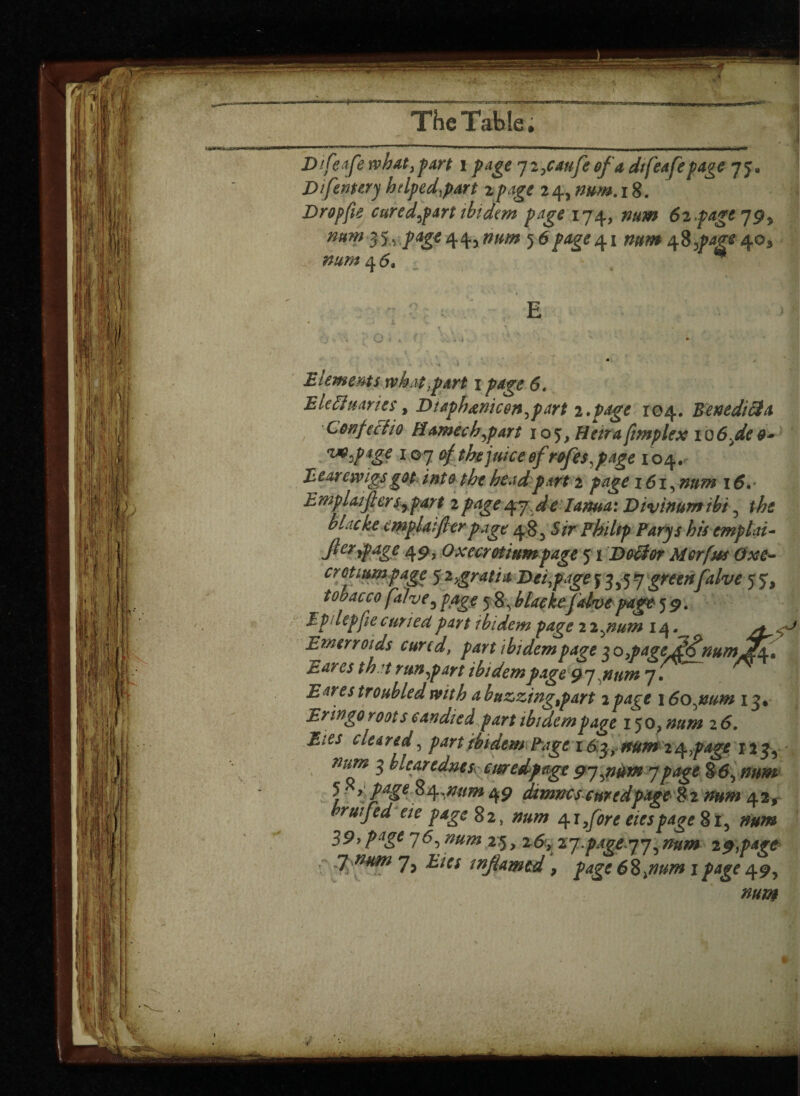 The Table.
Difeafe what, part 1 page 72, caufe of a difeafe page 75.
Difentery helped, part 2 page 24, num. 18.
Dropfie cured, part ibidem page 174, num 62 page 79,
num 35, page 44, num 56 page 41 num 48, page 40,
num 46.
E
Elements what, part 1 page 6.
Electuaries, Diaphænicon, part 2. page 104. Benedicta
Confectio Hamech, part 105, Heira fimplex 106, de o-
vo, page 107 of the juice of rofes, page 104.
Eearewigs got into the head part 2 page 161, num 16.
Emplaifters, part 2 page 47, de Ianua: Divinum ibi, the
blacke emplaifter page 48, Sir Philip Parys his emplai-
fter, page 49, Oxecrotium page 51 Doctor Morfus Oxe-
crotium page 52, gratia Dei, page 53, 57 green falve 55,
tobacco falve, page 58, blacke falve page 59.
Epilepfie curied part ibidem page 22, num 14.
Emerroids cured, part ibidem page 30, page num 4.
Eares that run, part ibidem page 97, num 7.
Eares troubled with a buzzing, part 2 page 160, num 13.
Eringo roots candied part ibidem page 150, num 26.
Eies cleared, part ibidem Page 163, num 24, page 123,
num 3 blearednes cured page 97, num 7 page 86, num
58, page 84, num 49 dimnes cured page 82 num 42,
bruifed eie page 82, num 41, fore eies page 81, num
39, page 76, num 25, 26, 27. page 77, num 29, page
7 num 7, Eies inflamed, page 68, num 1 page 49,
num